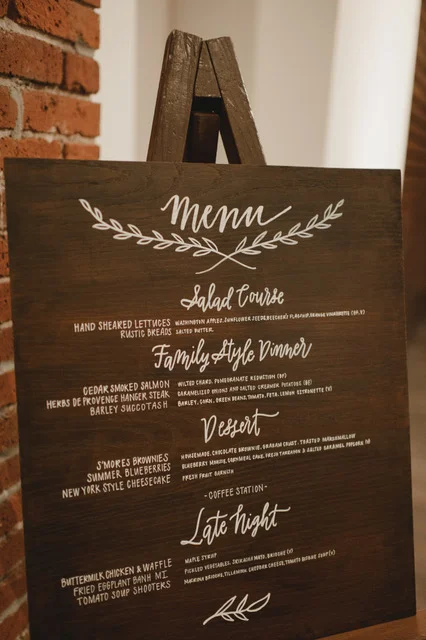 menu
Salad Course
HAND SHEARED LETTUCES WASHINGTON APPLES, SUNFLOWER SEEDS, BEECHER'S FLAGSHIP, ORANGE VINAIGRETTE
RUSTIC BREADS SALTED BUTTER
Family Style Dinner
CEDAR SMOKED SALMON WILTED CHARD, POMEGRANATE REDUCTION (GF)
HERBS DE PROVENCE HANGER STEAK CARAMELIZED ONIONS AND SALTED CREAMER POTATOES (GF)
BARLEY SUCCOTASH BARLEY, CORN, GREEN BEANS, TOMATO, FETA, LEMON VINAIGRETTE (V)
Dessert
S'MORES BROWNIES HOMEMADE CHOCOLATE BROWNIE, GRAHAM CRUST, TOASTED MARSHMALLOW
SUMMER BLUEBERRIES BLUEBERRY MOUSSE, CORNMEAL CAKE, FRESH TARRAGON & SALTED CARAMEL POPCORN
NEW YORK STYLE CHEESECAKE FRESH FRUIT GARNISH
-COFFEE STATION-
Late Night
BUTTERMILK CHICKEN & WAFFLE MAPLE SYRUP
FRIED EGGPLANT BANH MI PICKLED VEGETABLES, SRIRACHA MAYO, BRIOCHE (V)
TOMATO SOUP SHOOTERS BRIOCHE, TILLAMOOK CHEDDAR CHEESE, TOMATO BISQUE SOUP (V)